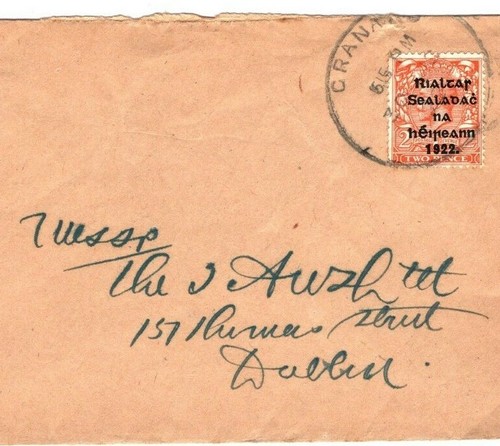 CRANA
6.15 PM
Rialtar
Sealadaċ
na
hÉireann
1922.
2 2
TWO PENCE
Messrs
The
157 Thomas Street
Dublin.